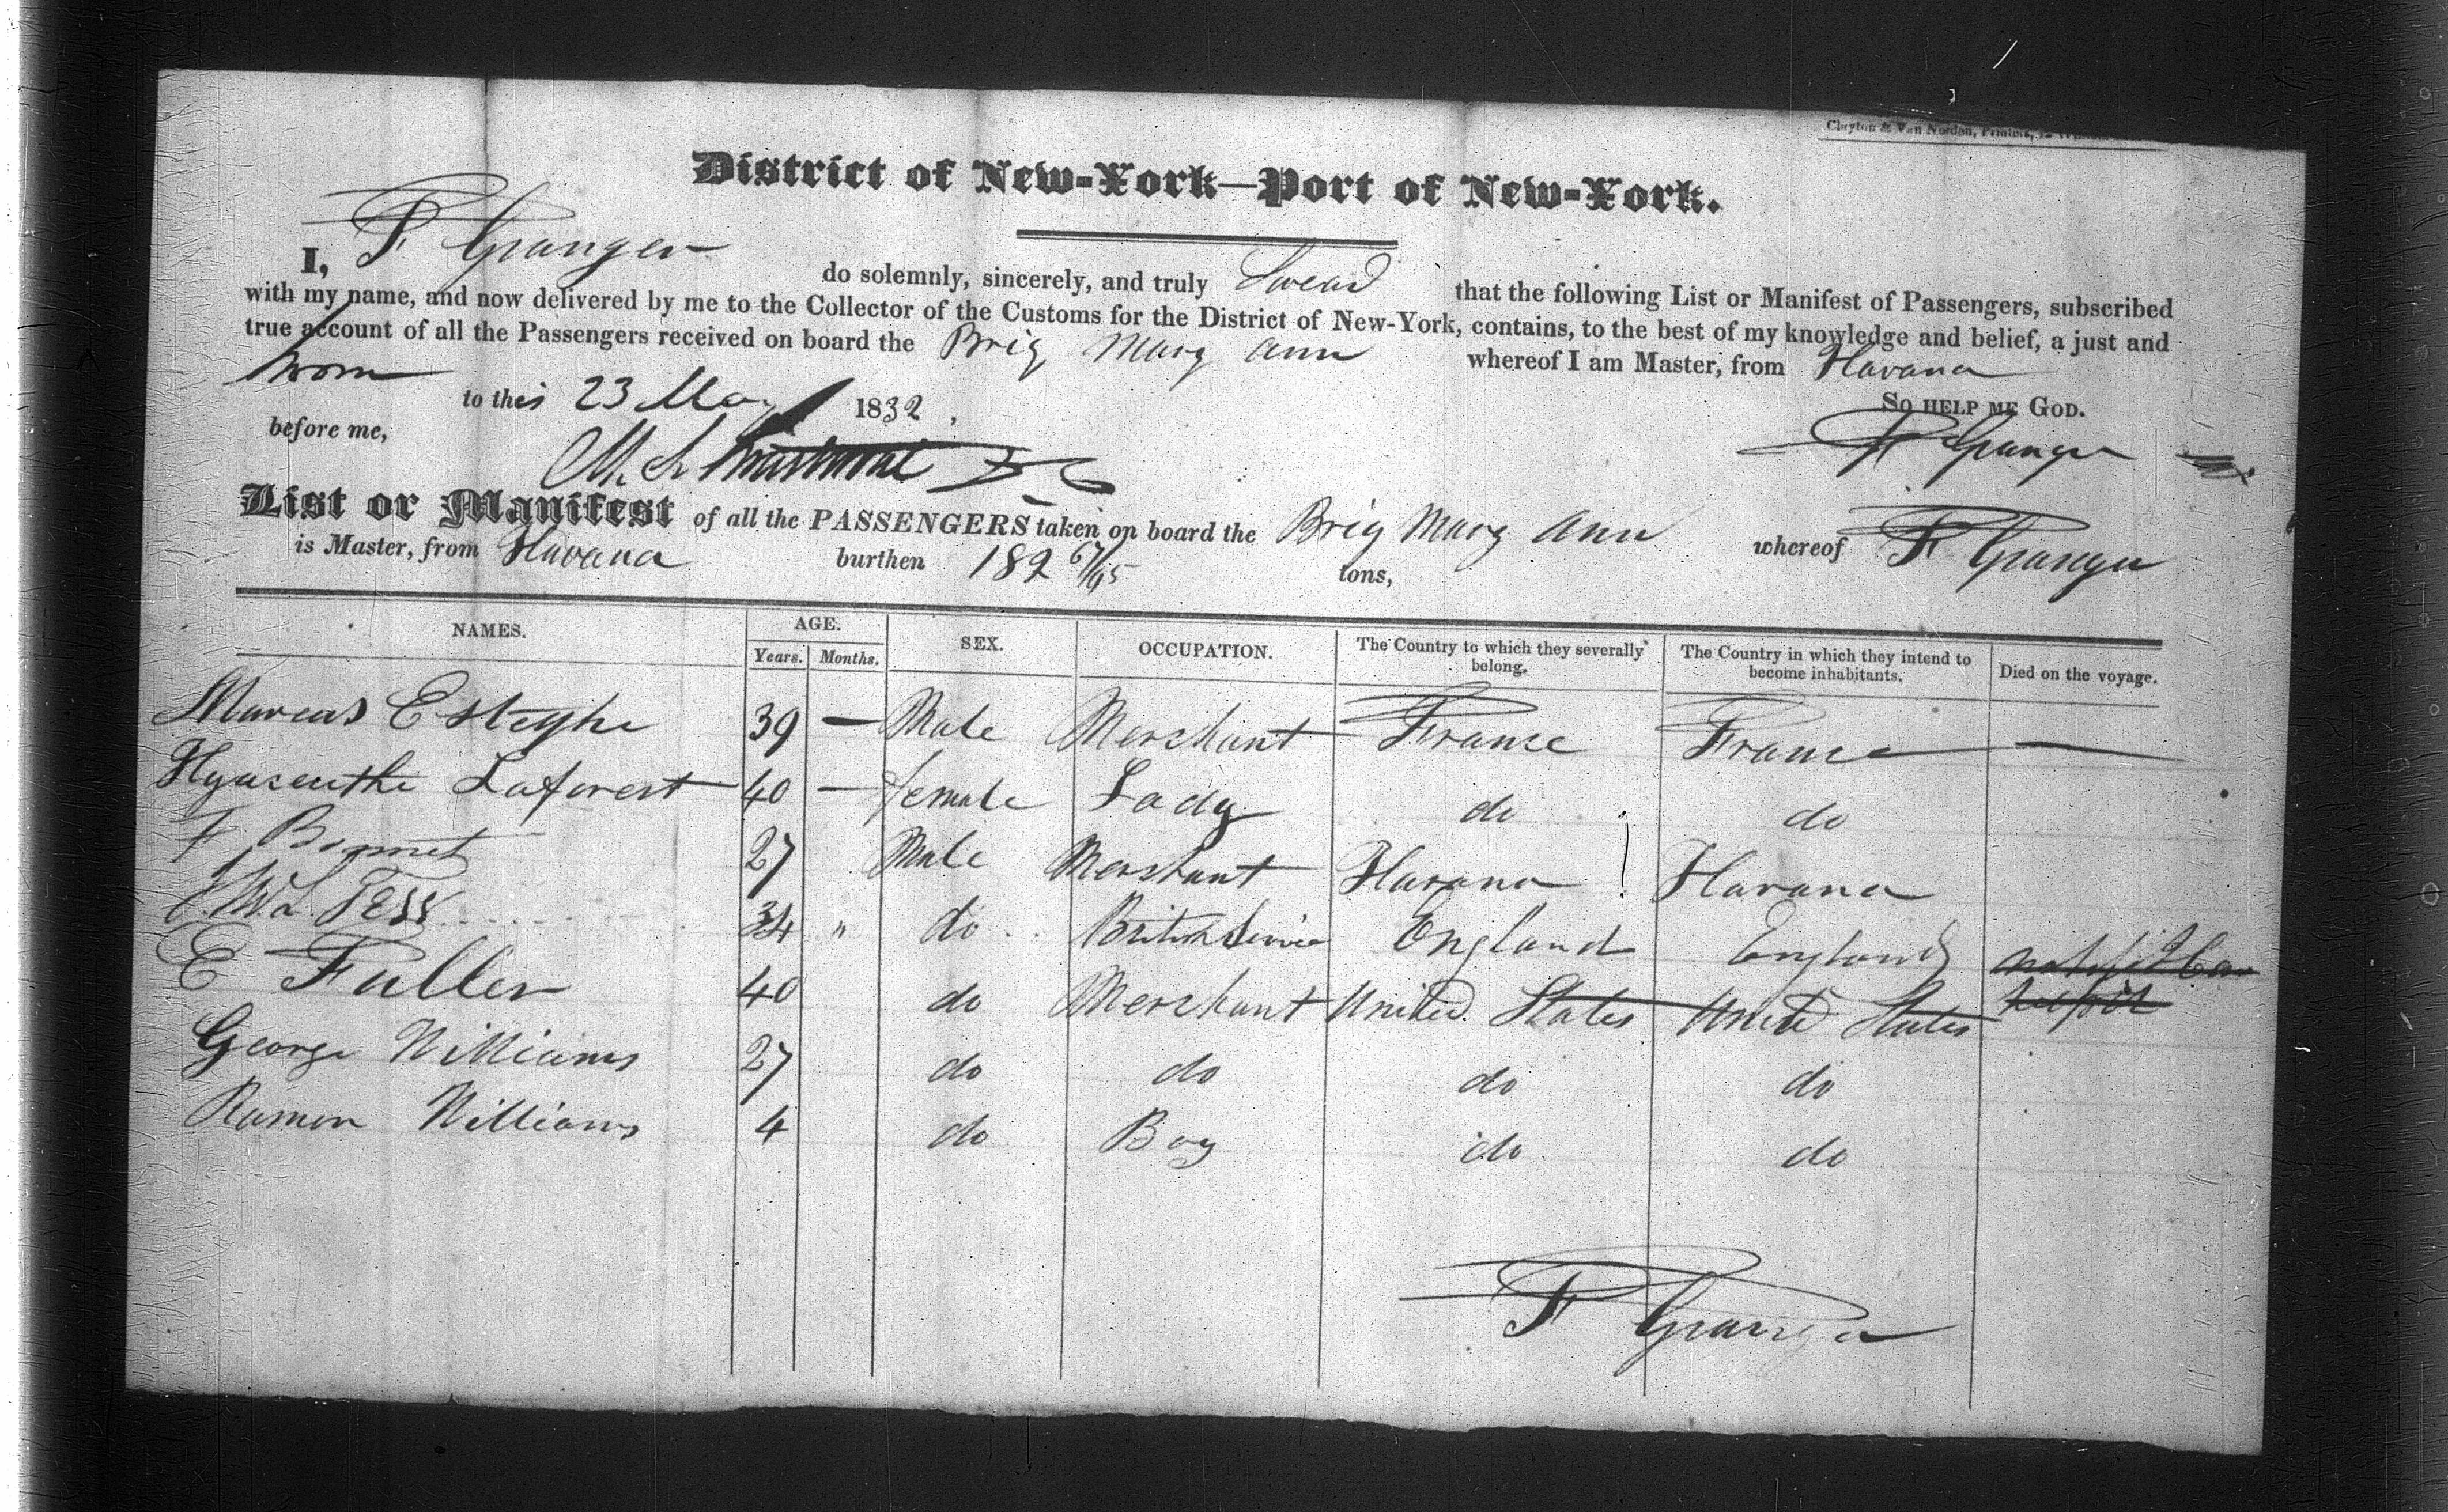 Clayton & Van Norden, Printers,
District of New-York—Port of New-York.
I, F Granger do solemnly, sincerely, and truly Swear that the following List or Manifest of Passengers, subscribed
with my name, and now delivered by me to the Collector of the Customs for the District of New-York, contains, to the best of my knowledge and belief, a just and
true account of all the Passengers received on board the Brig Mary Ann whereof I am Master, from Havana
Sworn to this 23 May 1832, So help me God.
before me, F Granger
List or Manifest of all the PASSENGERS taken on board the Brig Mary Ann whereof F Granger
is Master, from Havana burthen 182 67/95 tons,
NAMES. AGE. SEX. OCCUPATION. The Country to which they severally belong. The Country in which they intend to become inhabitants. Died on the voyage.
Years. Months.
Marcus Esteyhe 39 — Male Merchant France France —
Hyasenthe Laforest 40 — female Lady do do
F. 27 Male Merchant Havana Havana
34 " do British Service England England
E Fuller 40 do Merchant United States United States
George Williams 27 do do do do
Ramon Williams 4 do Boy do do
F Granger